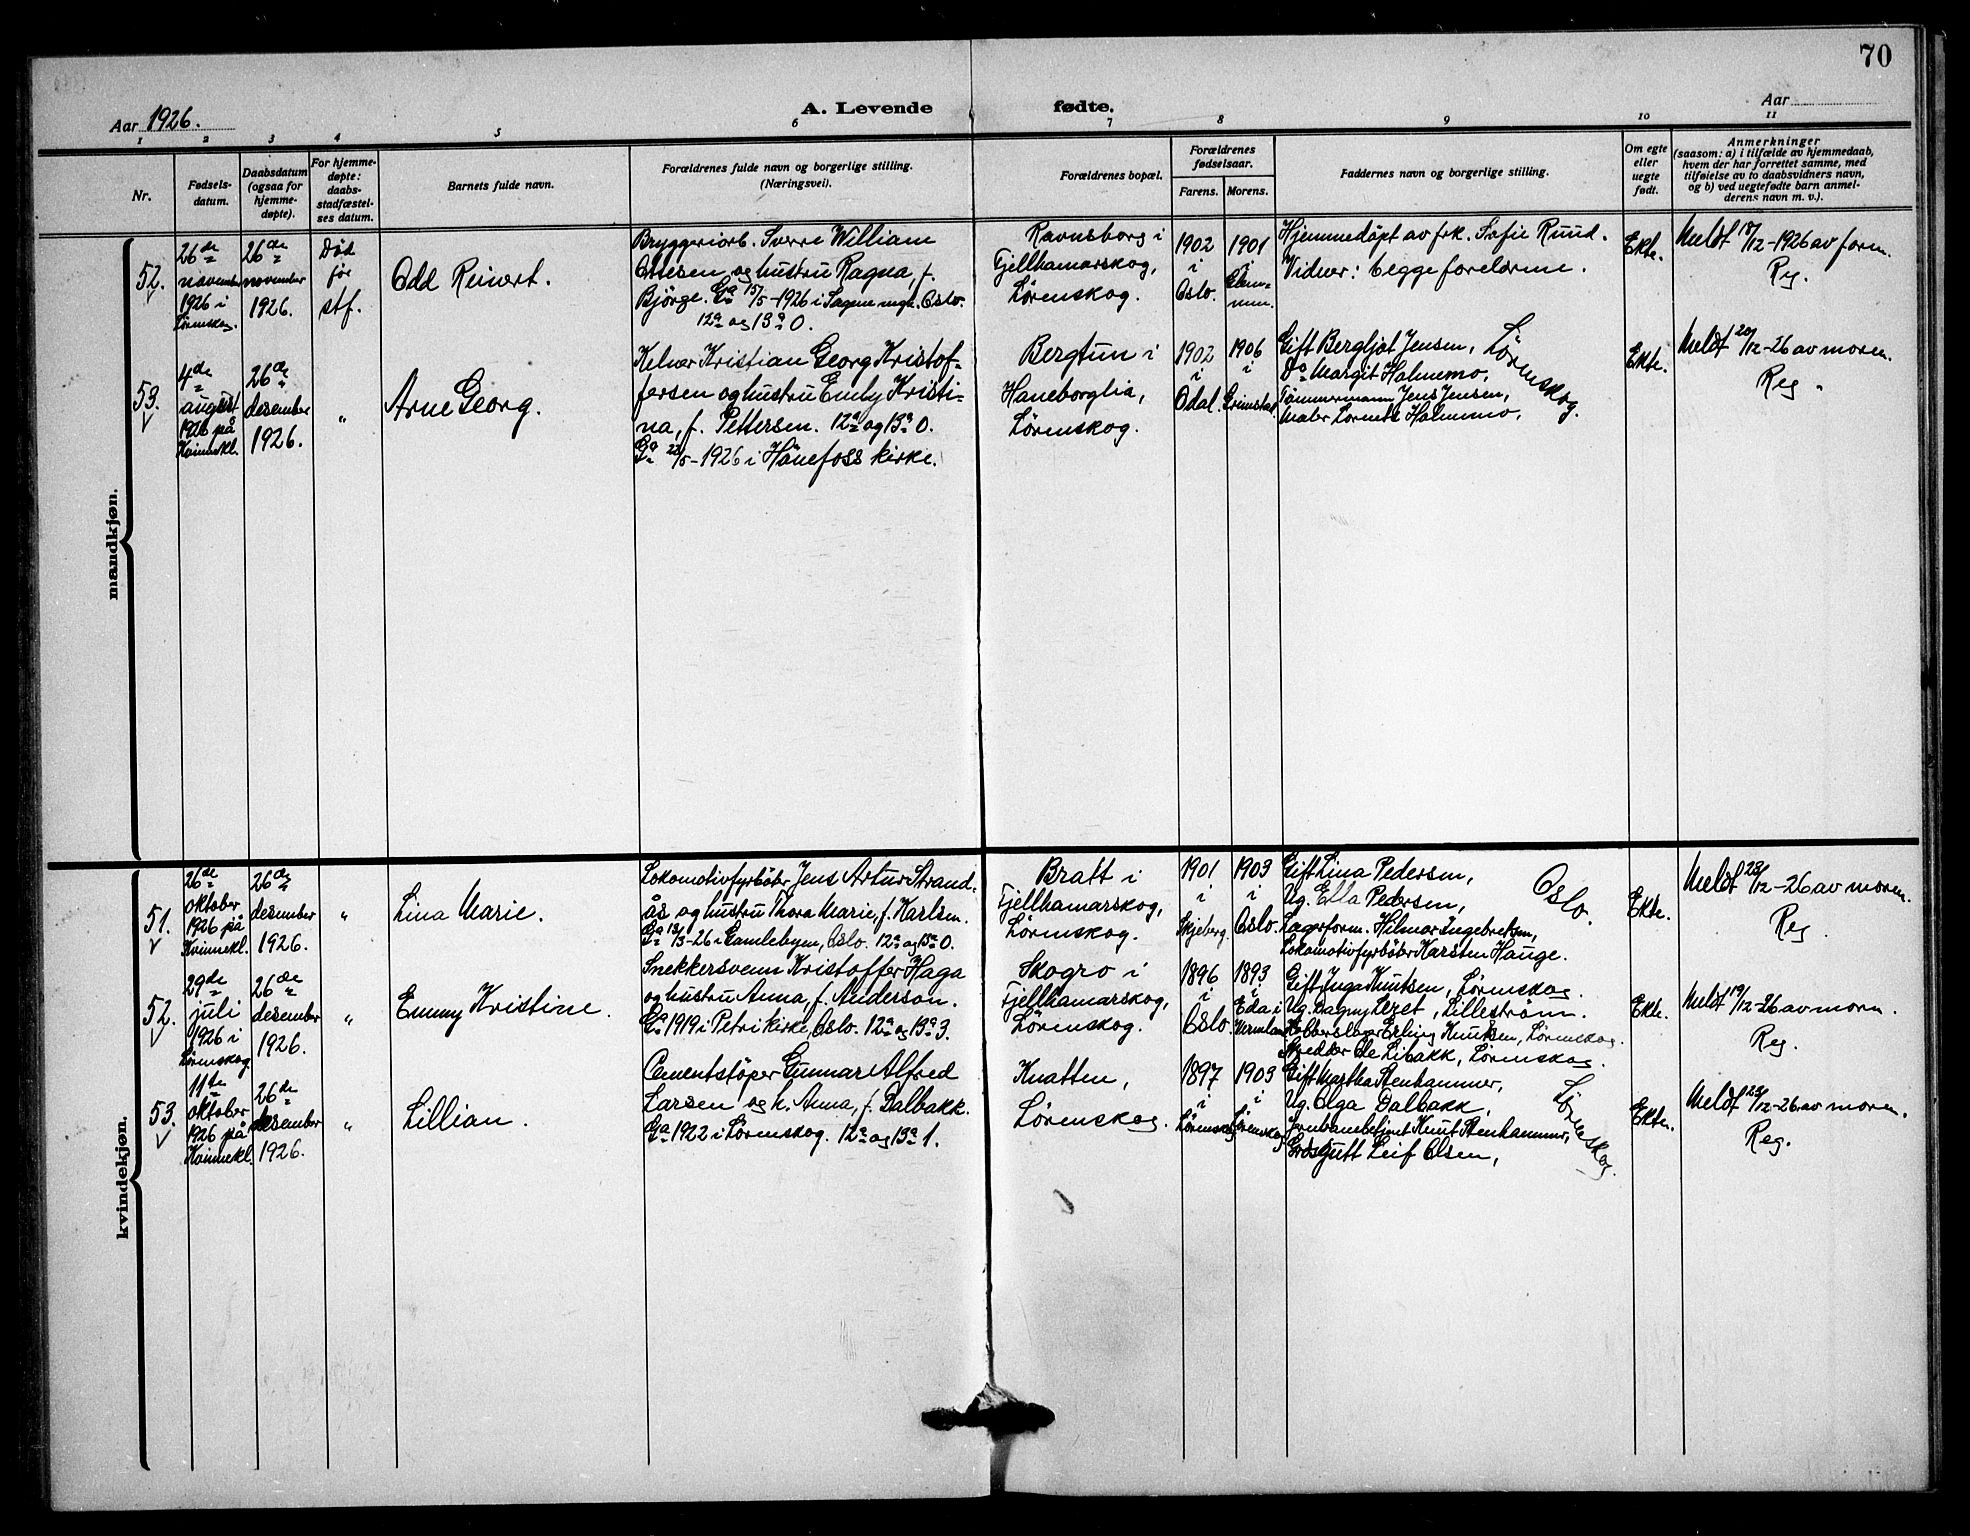 70
Aar 1926.
A. Levende fødte.
Aar
1 2 3 4 5 6 7 8 9 10 11
Nr.
Fødsels-
datum.
Daabsdatum
(ogsaa for
hjemme-
døpte).
For hjemme-
døpte:
daabs-
stadfæstel-
ses datum.
Barnets fulde navn.
Forældrenes fulde navn og borgerlige stilling.
(Næringsvei).
Forældrenes bopæl.
Forældrenes
fødselsaar.
Farens. Morens.
Faddernes navn og borgerlige stilling.
Om egte
eller
uegte
født.
Anmerkninger
(saasom: a) i tilfælde av hjemmedaab,
hvem der har forrettet samme, med
tilføielse av to daabsvidners navn,
og b) ved uegtefødte barn anmel-
derens navn m. v.).
mandkjøn.
52.
26de
november
1926 i
Lørenskog.
26de
november
1926.
Död
før
stf.
Odd Reivert.
Bryggeriarb. Sverre William
Ottesen og hustru Ragna, f.
Björge. Ga 15/5-1926 i Sagene mgt. Oslo.
12a og 13a 0.
Ravnsborg i
Fjellhamarskog,
Lørenskog.
1902
i
Oslo.
1901
i
Hjemmedöpt av frk. Sofie Ruud.
Vidner: begge foreldrene.
Ekte.
Meldt 17/12-1926 av faren.
Rg.
53.
4de
august
1926 på
Kvinnekl.
26de
desember
1926.
"
Arne Georg.
Kelner Kristian Georg Kristof-
fersen og hustru Emly Kristi-
na, f. Pettersen. 12a og 13a 0.
Ga 22/5-1926 i Hönefoss kirke.
Bergtun i
Haneborglia,
Lørenskog.
1902
i
Odal.
1906
i
Grimstad.
Gift Bergljot Jensen,
Do Margit Holmemo,
Tømmermann Jens Jensen,
Maler Lorents Holmemo,
Lørenskog.
Ekte.
Meldt 20/12-26 av moren.
Reg.
kvindekjøn.
51.
26de
oktober
1926 på
Kvinnekl.
26de
desember
1926.
"
Lina Marie.
Lokomotivfyrböter Jens Artur Strand-
ås og hustru Thora Marie, f. Karlsen.
Ga 13/3-26 i Gamlebyen, Oslo. 12a og 13a 0.
Bratt i
Fjellhamarskog,
Lørenskog.
1901
i
Skjeberg.
1903
i
Oslo.
Gift Lina Pedersen,
Ug. Ella Pedersen,
Lagerform. Hilmar Ingebretsen,
Lokomotivfyrböter Karsten Hauge.
Oslo.
Ekte.
Meldt 23/12-26 av moren.
Reg.
52.
29de
juli
1926 i
Lørenskog
26de
desember
1926.
"
Emmy Kristine.
Snekkersvenn Kristoffer Haga
og hustru Anna, f. Anderson.
Ga 1919 i Petri kirke, Oslo. 12a og 13a 3.
Skogro i
Fjellhamarskog,
Lørenskog.
1896
i
Oslo.
1893
i
Eda i
Vermland
Gift Inga Knutsen, Lørenskog.
Ug. Dagny Lexet, Lilleström.
Kobberslager Erling Knutsen, Lørenskog.
Skredder Ole Libakk, Lørenskog.
Ekte.
Meldt 19/12-26 av moren.
Reg.
53.
11te
oktober
1926 på
Kvinnekl.
26de
desember
1926.
"
Lillian.
Cementstöper Gunnar Alfred
Larsen og h. Anna, f. Dalbakk.
Ga 1922 i Lørenskog. 12a og 13a 1.
Knatten,
Lørenskog.
1897
i
Lørenskog
1903
i
Lørenskog
Gift Martha Stenhammer,
Ug. Olga Dalbakk,
Jernbanebetjent Knut Stenhammer,
Leif Olsen,
Lørenskog.
Ekte.
Meldt 23/12-26 av moren.
Reg.